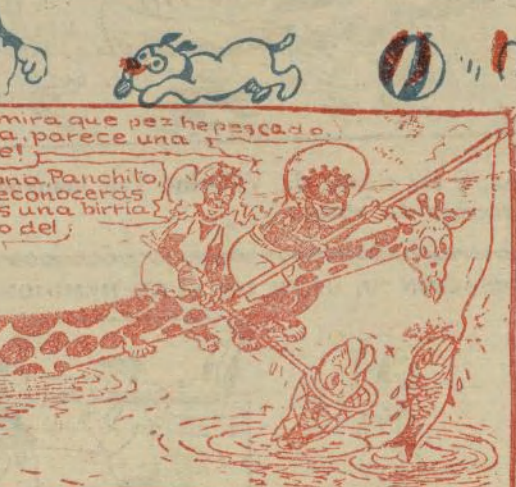 mira que pez he pescado.
a, parece una
e!
ana, Panchito,
econocerás
s una birria
o del